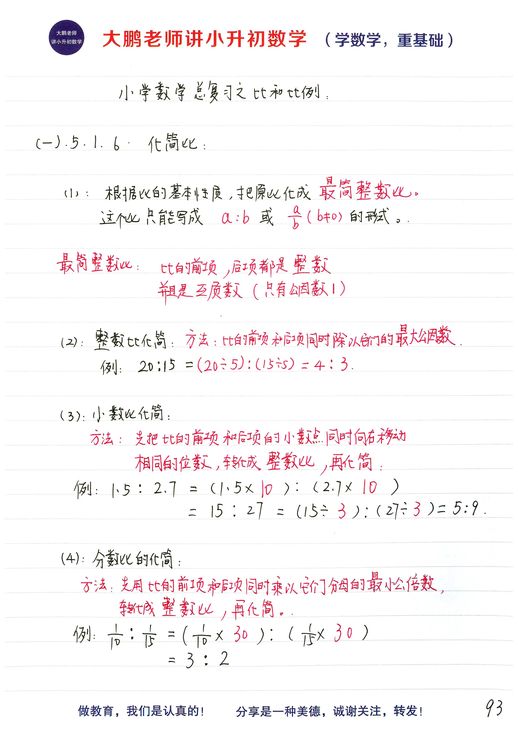 大鹏老师
讲小升初数学
大鹏老师讲小升初数学 （学数学，重基础）
小学数学总复习之比和比例：
(一).5.1.6. 化简比：
(1)：根据比的基本性质，把原比化成 最简整数比。
这个比只能写成 a:b 或 a/b (b≠0) 的形式。
最简整数比： 比的前项，后项都是 整数
并且是互质数（只有公因数1）
(2)：整数比化简：方法：比的前项和后项同时除以它们的最大公因数.
例：20:15 =(20÷5):(15÷5)= 4:3.
(3)：小数比化简：
方法：先把比的前项和后项的小数点同时向右移动
相同的位数，转化成 整数比，再化简：
例：1.5:2.7 = (1.5×10):(2.7×10)
= 15:27 = (15÷3):(27÷3)= 5:9.
(4)：分数比的化简：
方法：先用比的前项和后项同时乘以它们分母的最小公倍数，
转化成 整数比，再化简。.
例：1/10:1/15 =(1/10×30):(1/15×30)
= 3:2
做教育，我们是认真的！ 分享是一种美德，诚谢关注，转发！
93